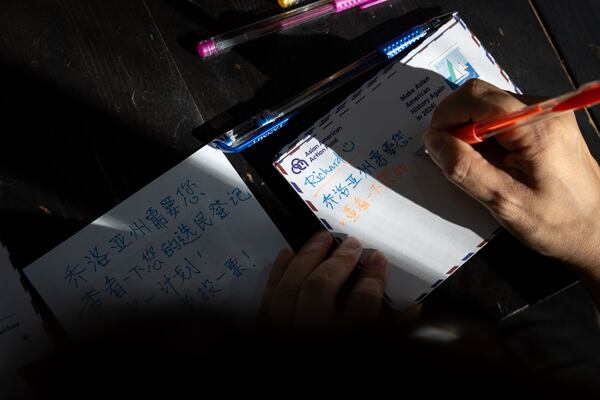 乔洛亚州需要您
查看一下您的选民登记
一计划!
投票!
Asian American
Action Fund
Make Asian
American
History Again
in
Richard
乔洛亚州需要您
查看一下